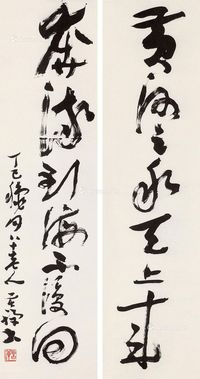 黄河之水天上來
奔流到海不復回
丁巳 八十老人 書